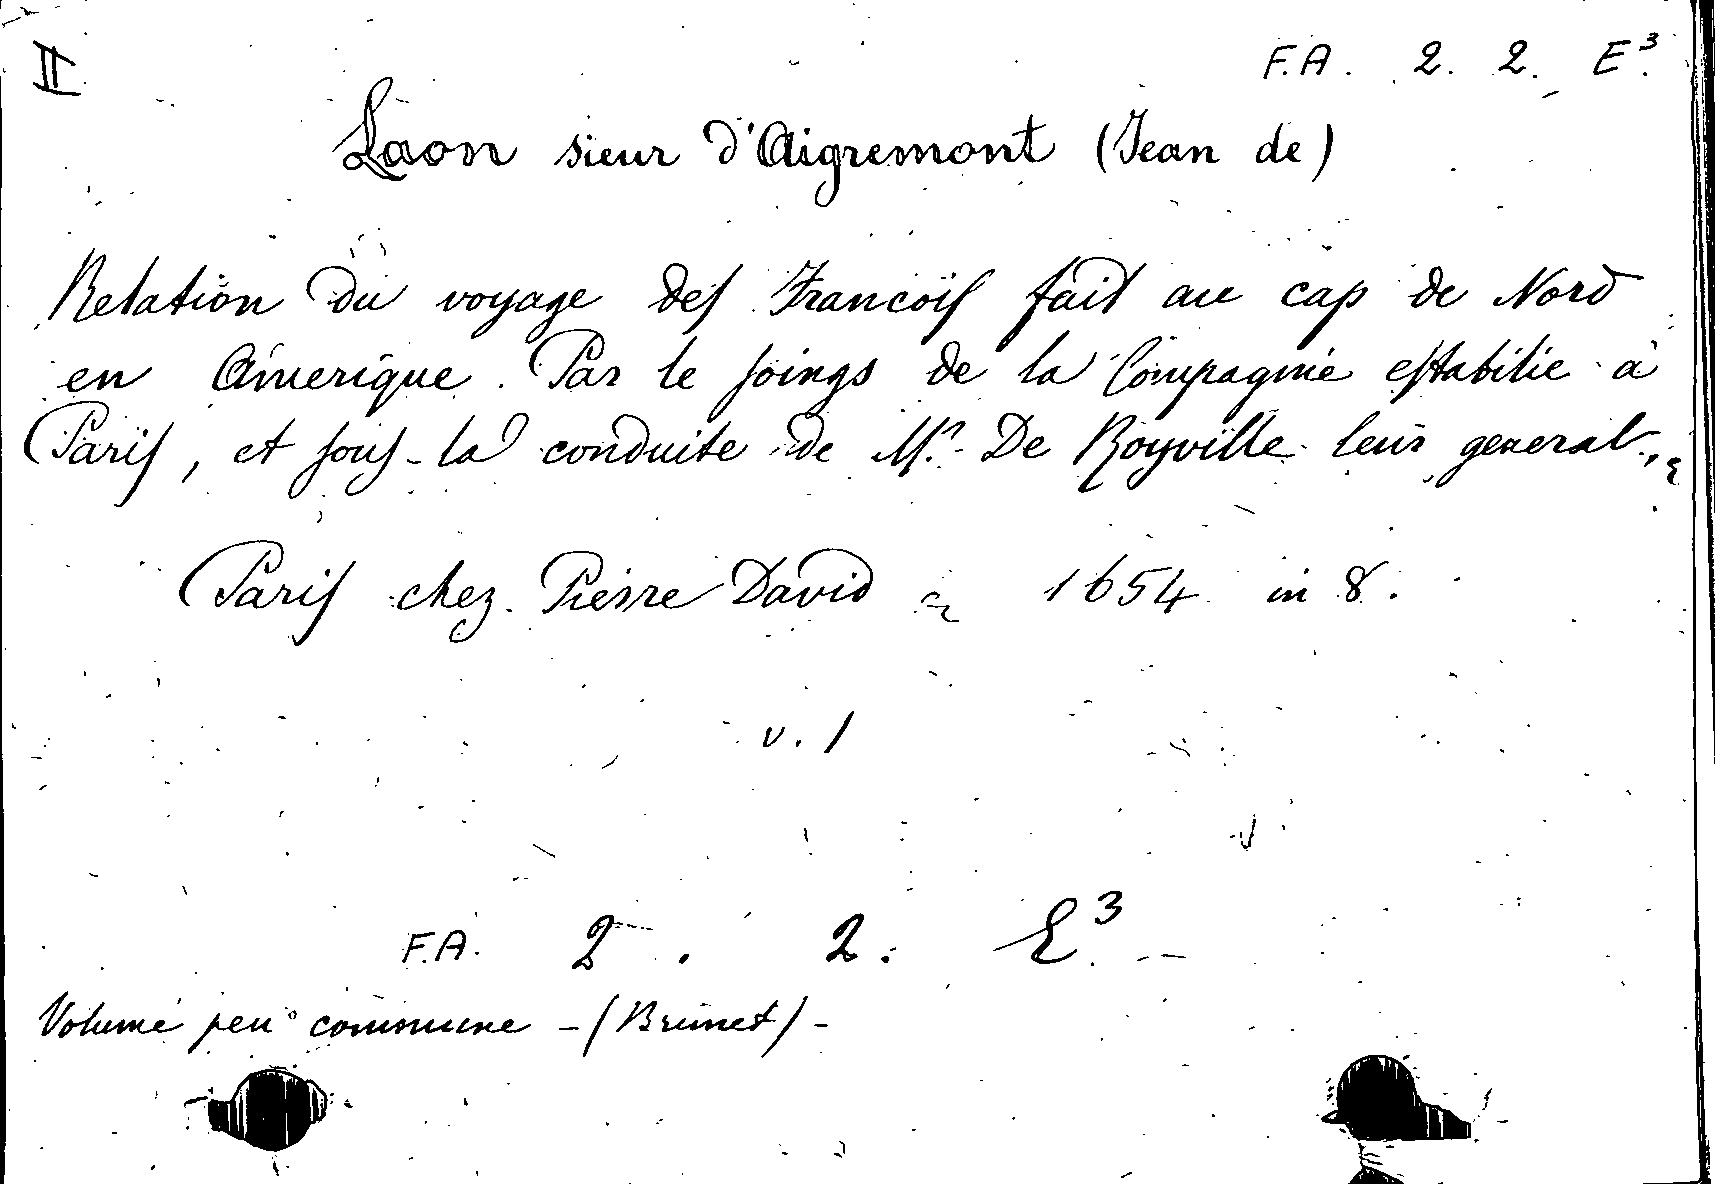 II
F.A. 2. 2. E³.
Laon sieur d'Aigremont (Jean de)
Relation du voyage des Francois fait au cap de Nord
en Amerique. Par le soings de la Compagnie establie à
Paris, et sous la conduite de Mr. De Royville leur general,
Paris chez Pierre David 1654 in 8.
v. 1
F.A. 2. 2. E³
Volume peu commune - (Brunet) -